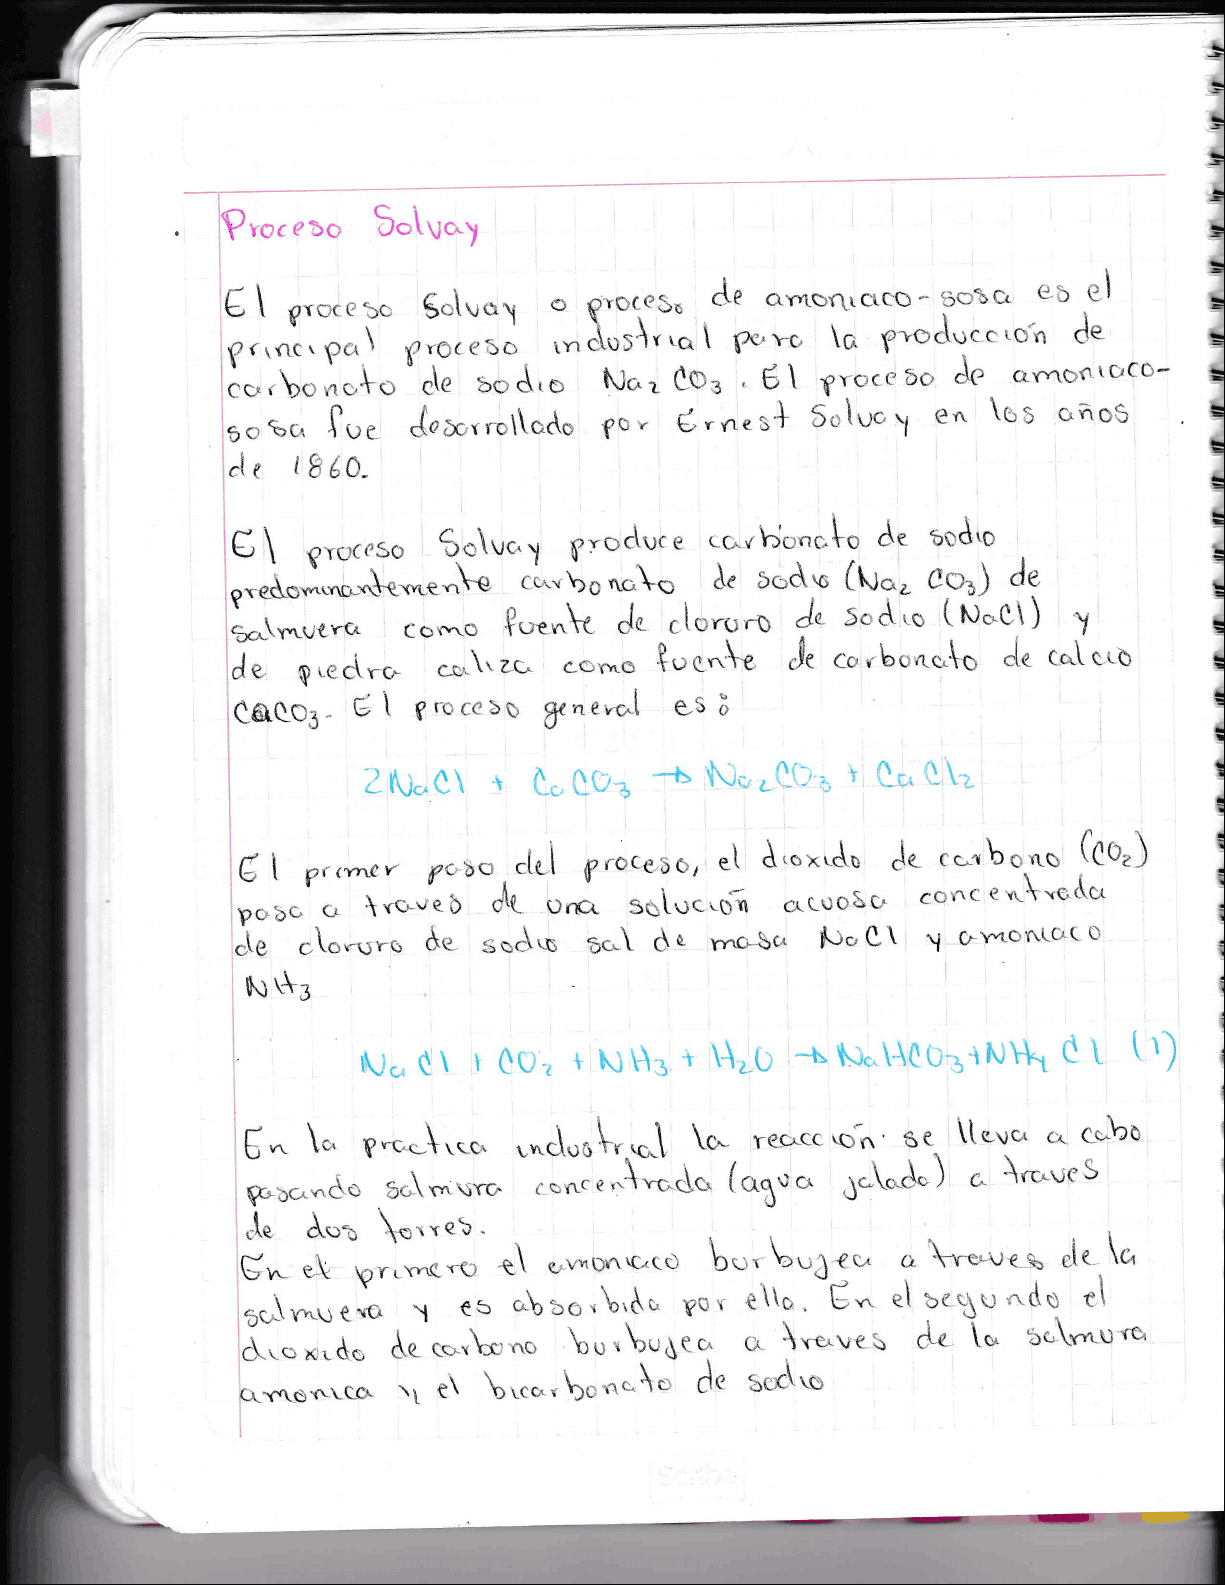 Proceso Solvay
El proceso Solvay o proceso de amoniaco-sosa es el
principal proceso industrial para la producción de
carbonato de sodio Na₂CO₃. El proceso de amoniaco-
sosa fue desarrollado por Ernest Solvay en los años
de 1860.
El proceso Solvay produce carbonato de sodio
predominantemente carbonato de sodio (Na₂CO₃) de
salmuera como fuente de cloruro de sodio (NaCl) y
de piedra caliza como fuente de carbonato de calcio
CaCO₃. El proceso general es:
2NaCl + CaCO₃ → Na₂CO₃ + CaCl₂
El primer paso del proceso, el dioxido de carbono (CO₂)
pasa a traves de una solución acuosa concentrada
de cloruro de sodio sal de masa NaCl y amoniaco
NH₃
NaCl + CO₂ + NH₃ + H₂O → NaHCO₃ + NH₄Cl (1)
En la practica industrial la reacción se lleva a cabo
pasando salmura concentrada (agua jalada) a traves
de dos torres.
En el primero el amoniaco burbujea a traves de la
salmuera y es absorbida por ella. En el segundo el
dioxido de carbono burbujea a traves de la salmura
amonica y el bicarbonato de sodio
Scribe